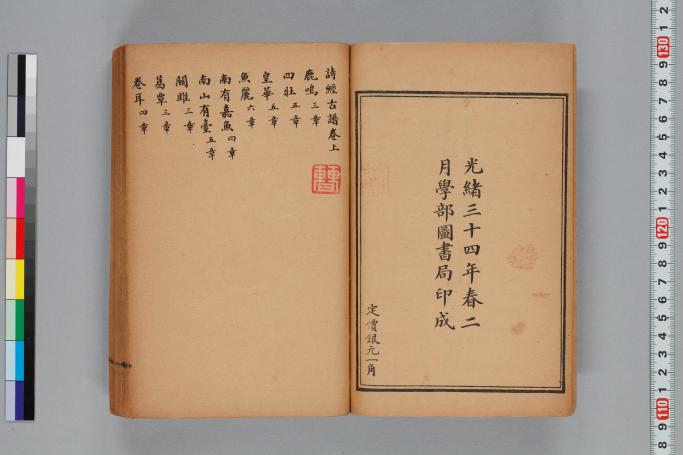 光緒三十四年春二
月學部圖書局印成
定價銀元一角
詩經古譜卷上
鹿鳴三章
四牡五章
皇華五章
魚麗六章
南有嘉魚四章
南山有臺五章
關雎三章
葛覃三章
卷耳四章
2
1
130
9
8
7
6
5
4
3
2
1
120
9
8
7
6
5
4
3
2
1
110
9
8